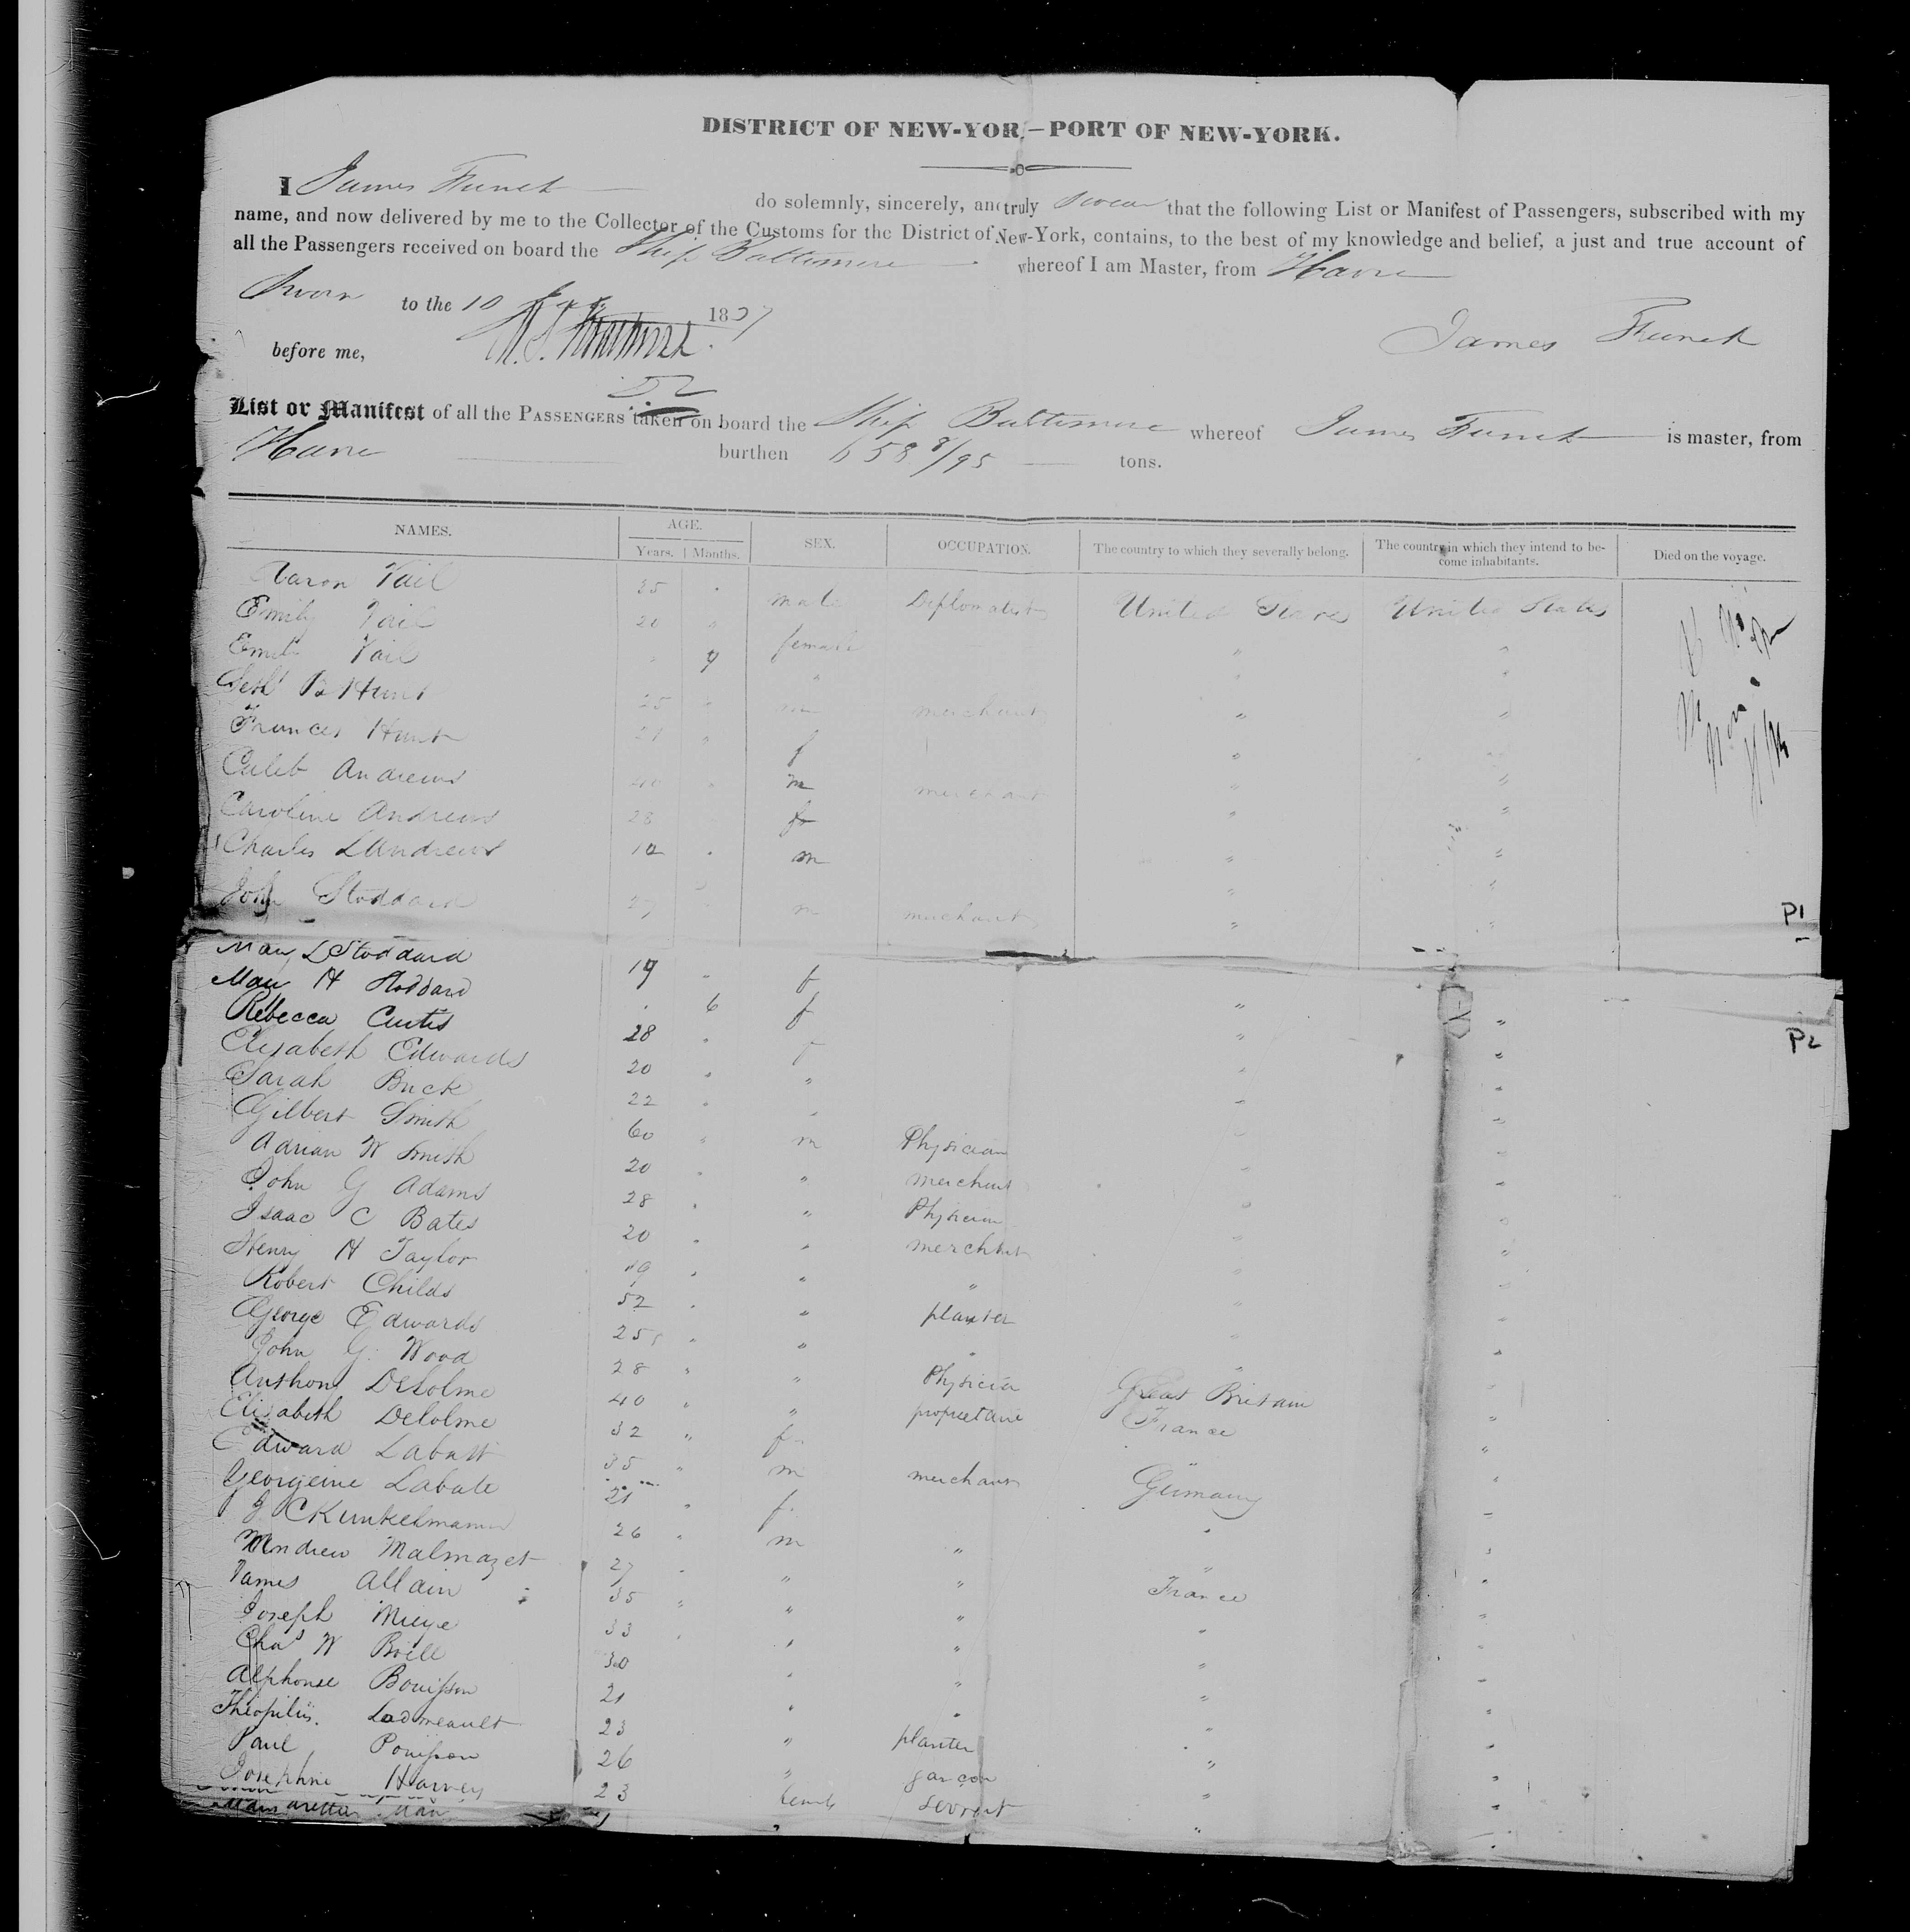 DISTRICT OF NEW-YOR -PORT OF NEW-YORK.
I James Funck do solemnly, sincerely, and truly swear that the following List or Manifest of Passengers, subscribed with my
name, and now delivered by me to the Collector of the Customs for the District of New-York, contains, to the best of my knowledge and belief, a just and true account of
all the Passengers received on board the Ship Baltimore whereof I am Master, from Havre
Sworn to the 10 1837
before me,
James Funck
52
List or Manifest of all the PASSENGERS taken on board the Ship Baltimore whereof James Funck is master, from
Havre burthen 658 8/95 tons.
NAMES. AGE. SEX. OCCUPATION. The country to which they severally belong. The country in which they intend to be- Died on the voyage.
Years. Months. come inhabitants.
Aaron Vail 35 male Diplomatist United States United States
Emily Vail 20 " female " "
Emily Vail " 9 " " "
Seth B Hunt 25 " m merchant " "
Frances Hunt 21 " f " "
Caleb Andrews 40 " m merchant " "
Caroline Andrews 28 f " "
Charles L Andrews 12 m " "
John Stoddard 27 m merchant " "
P1
Mary L Stoddard 19 " f
Mary H Stoddard 6 f " "
Rebecca Curtis 28 " f " "
P2
Elizabeth Edwards 20 " " " "
Sarah Buck 22 " " " "
Gilbert Smith 60 " m Physician " "
Adrian W Smith 20 " " merchant " "
John G Adams 28 " " Physician " "
Isaac C Bates 20 " " merchant " "
Henry H Taylor 19 " " " " "
Robert Childs 52 " " planter " "
George Edwards 25 " " " " "
John G. Wood 28 " " Physician Great Britain "
Anthony Delolme 40 " " proprietaire France "
Elizabeth Delolme 32 " f " "
Edward Labatt 35 " m merchant Germany "
Georgeine Labate 21 " f. " "
J C Kunkelmann 26 " m " " "
Andrew Malmazet 27 " " " France "
James Allain 35 " " " " "
Joseph Miege 33 " " " " "
Chas W Brill 30 " " " "
Alphonse Bouisson 21 " " " "
Theopilus. Ladmeault 23 " planter " "
Paul Pouisson 26 " garçon " "
Josephine Harvey 23 female servant " "